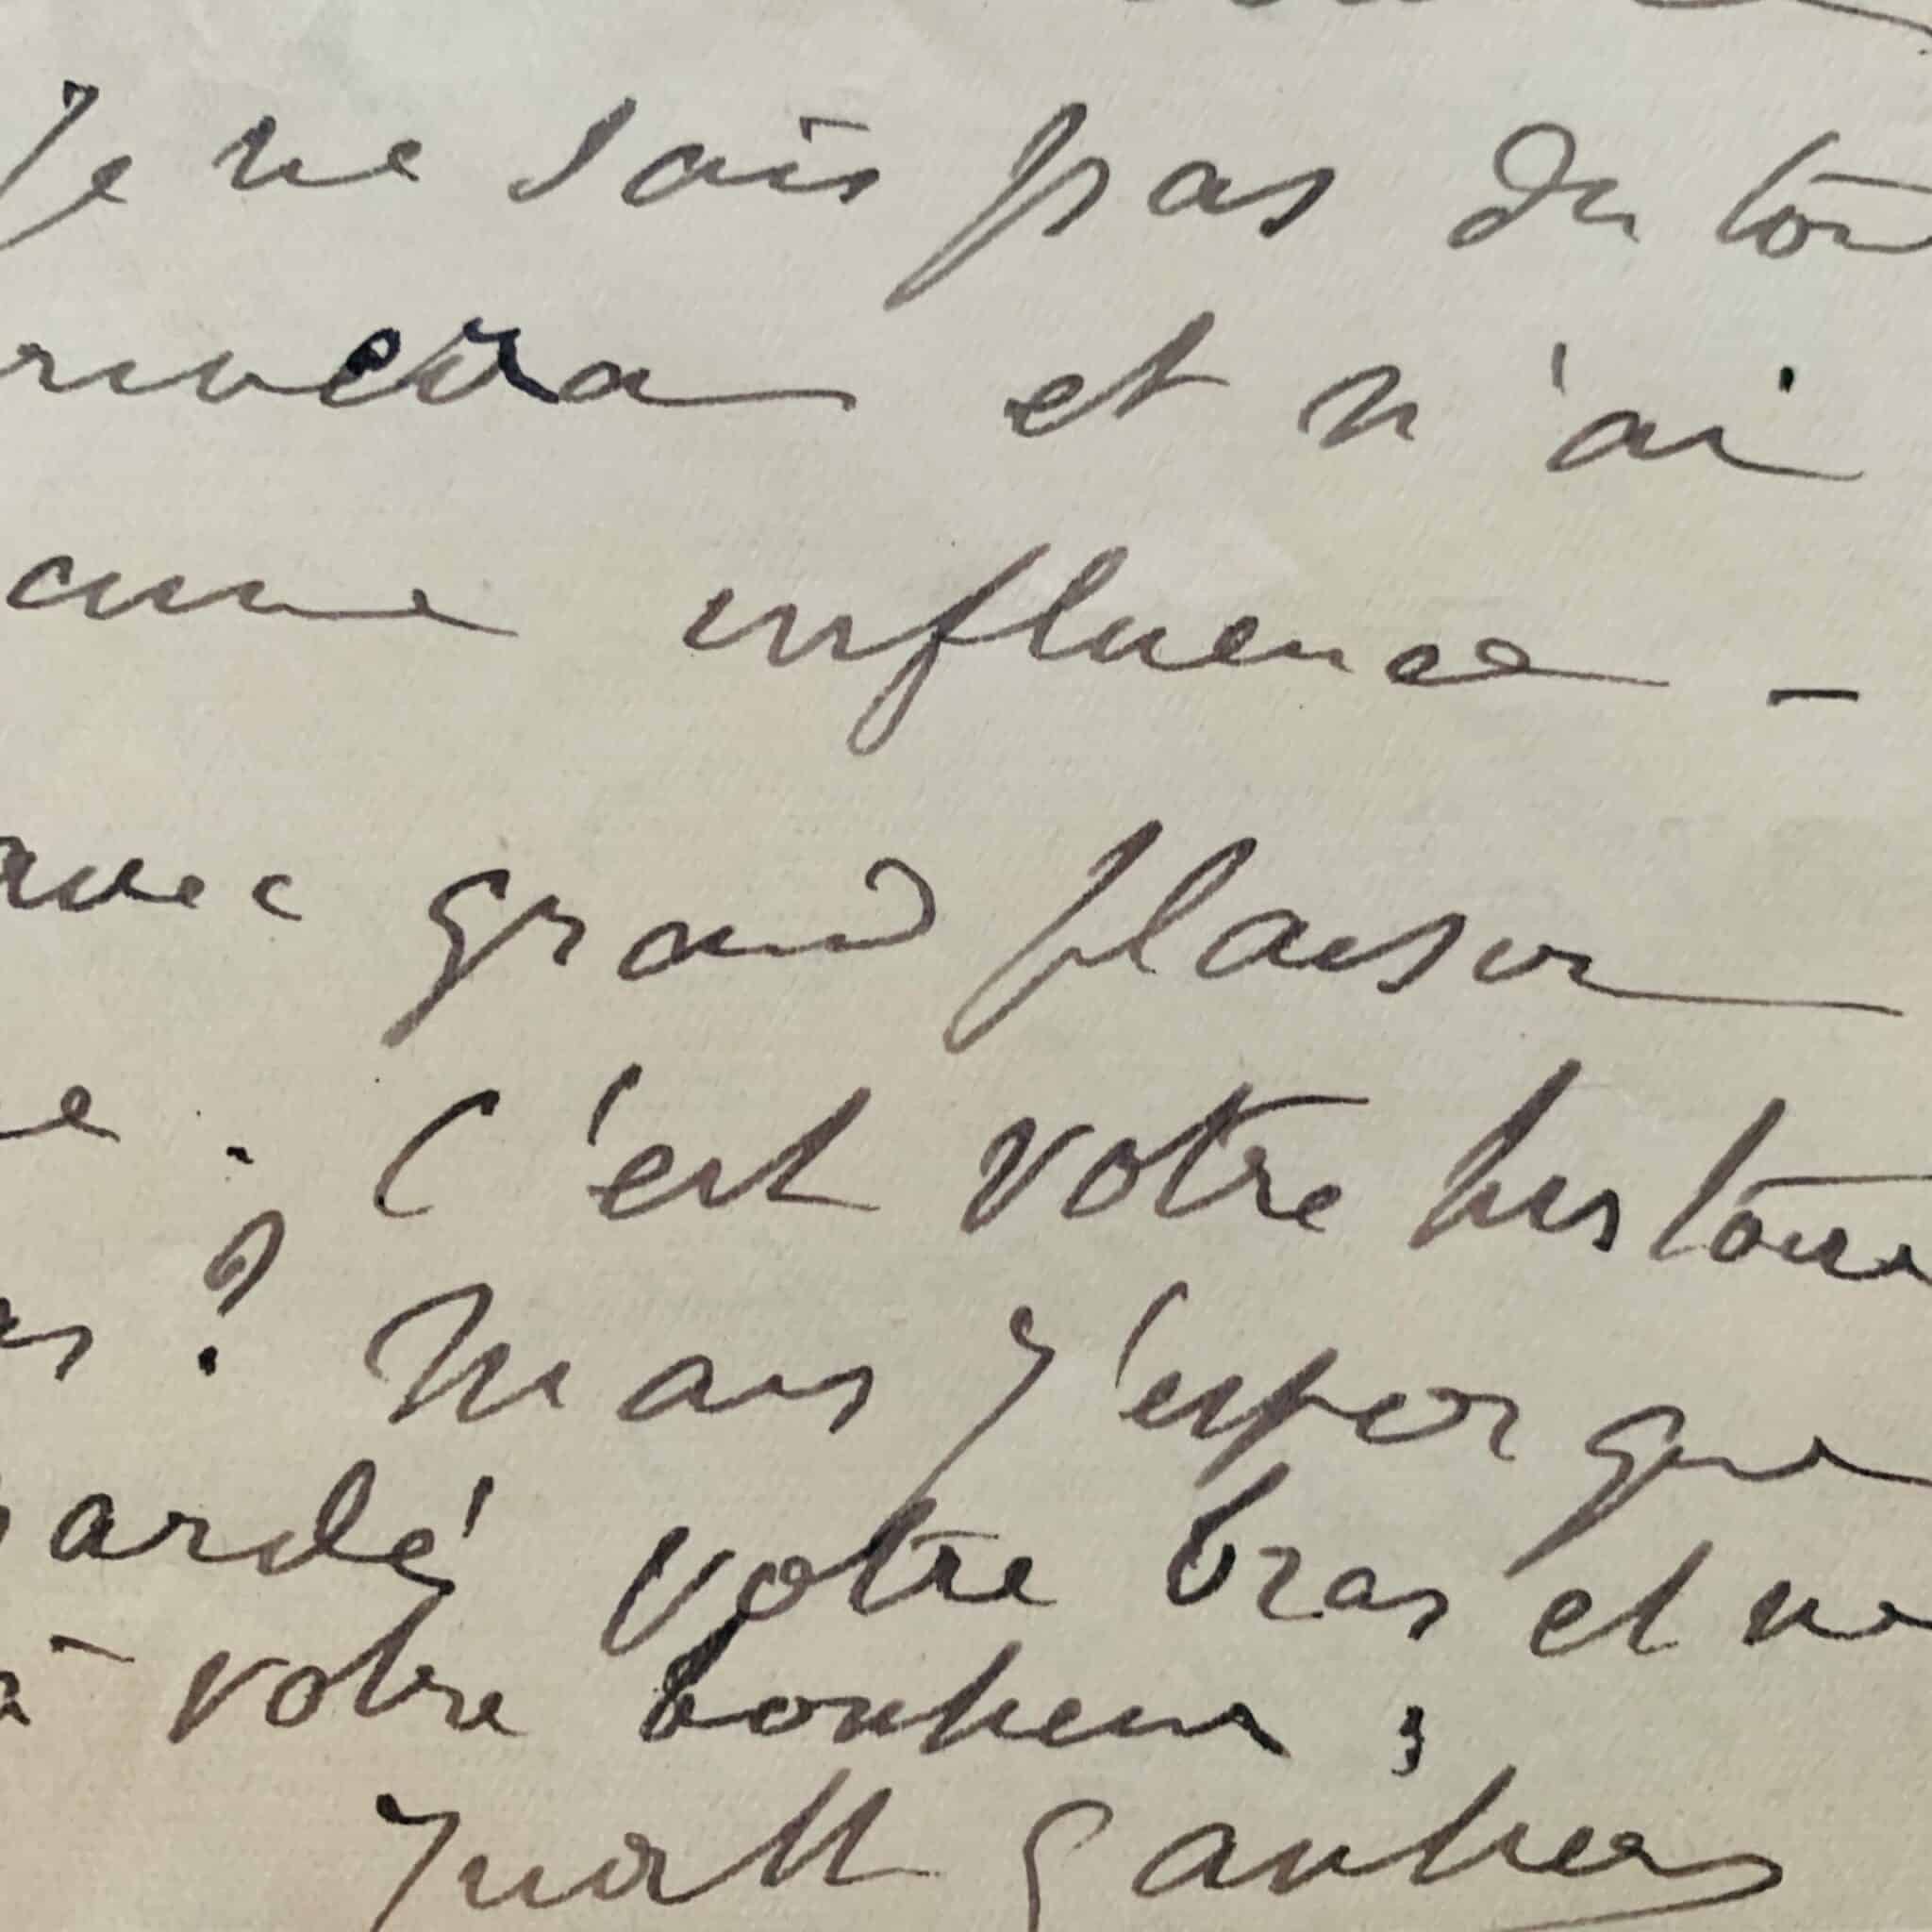 Je ne sais pas du tou
rivera et n'ai
cune influence -
avec grand plaisir
e. C'est votre histoire
as ? Mais j'espère que
ardé votre bras et ne
à votre bonheur ;
Judith Gautier